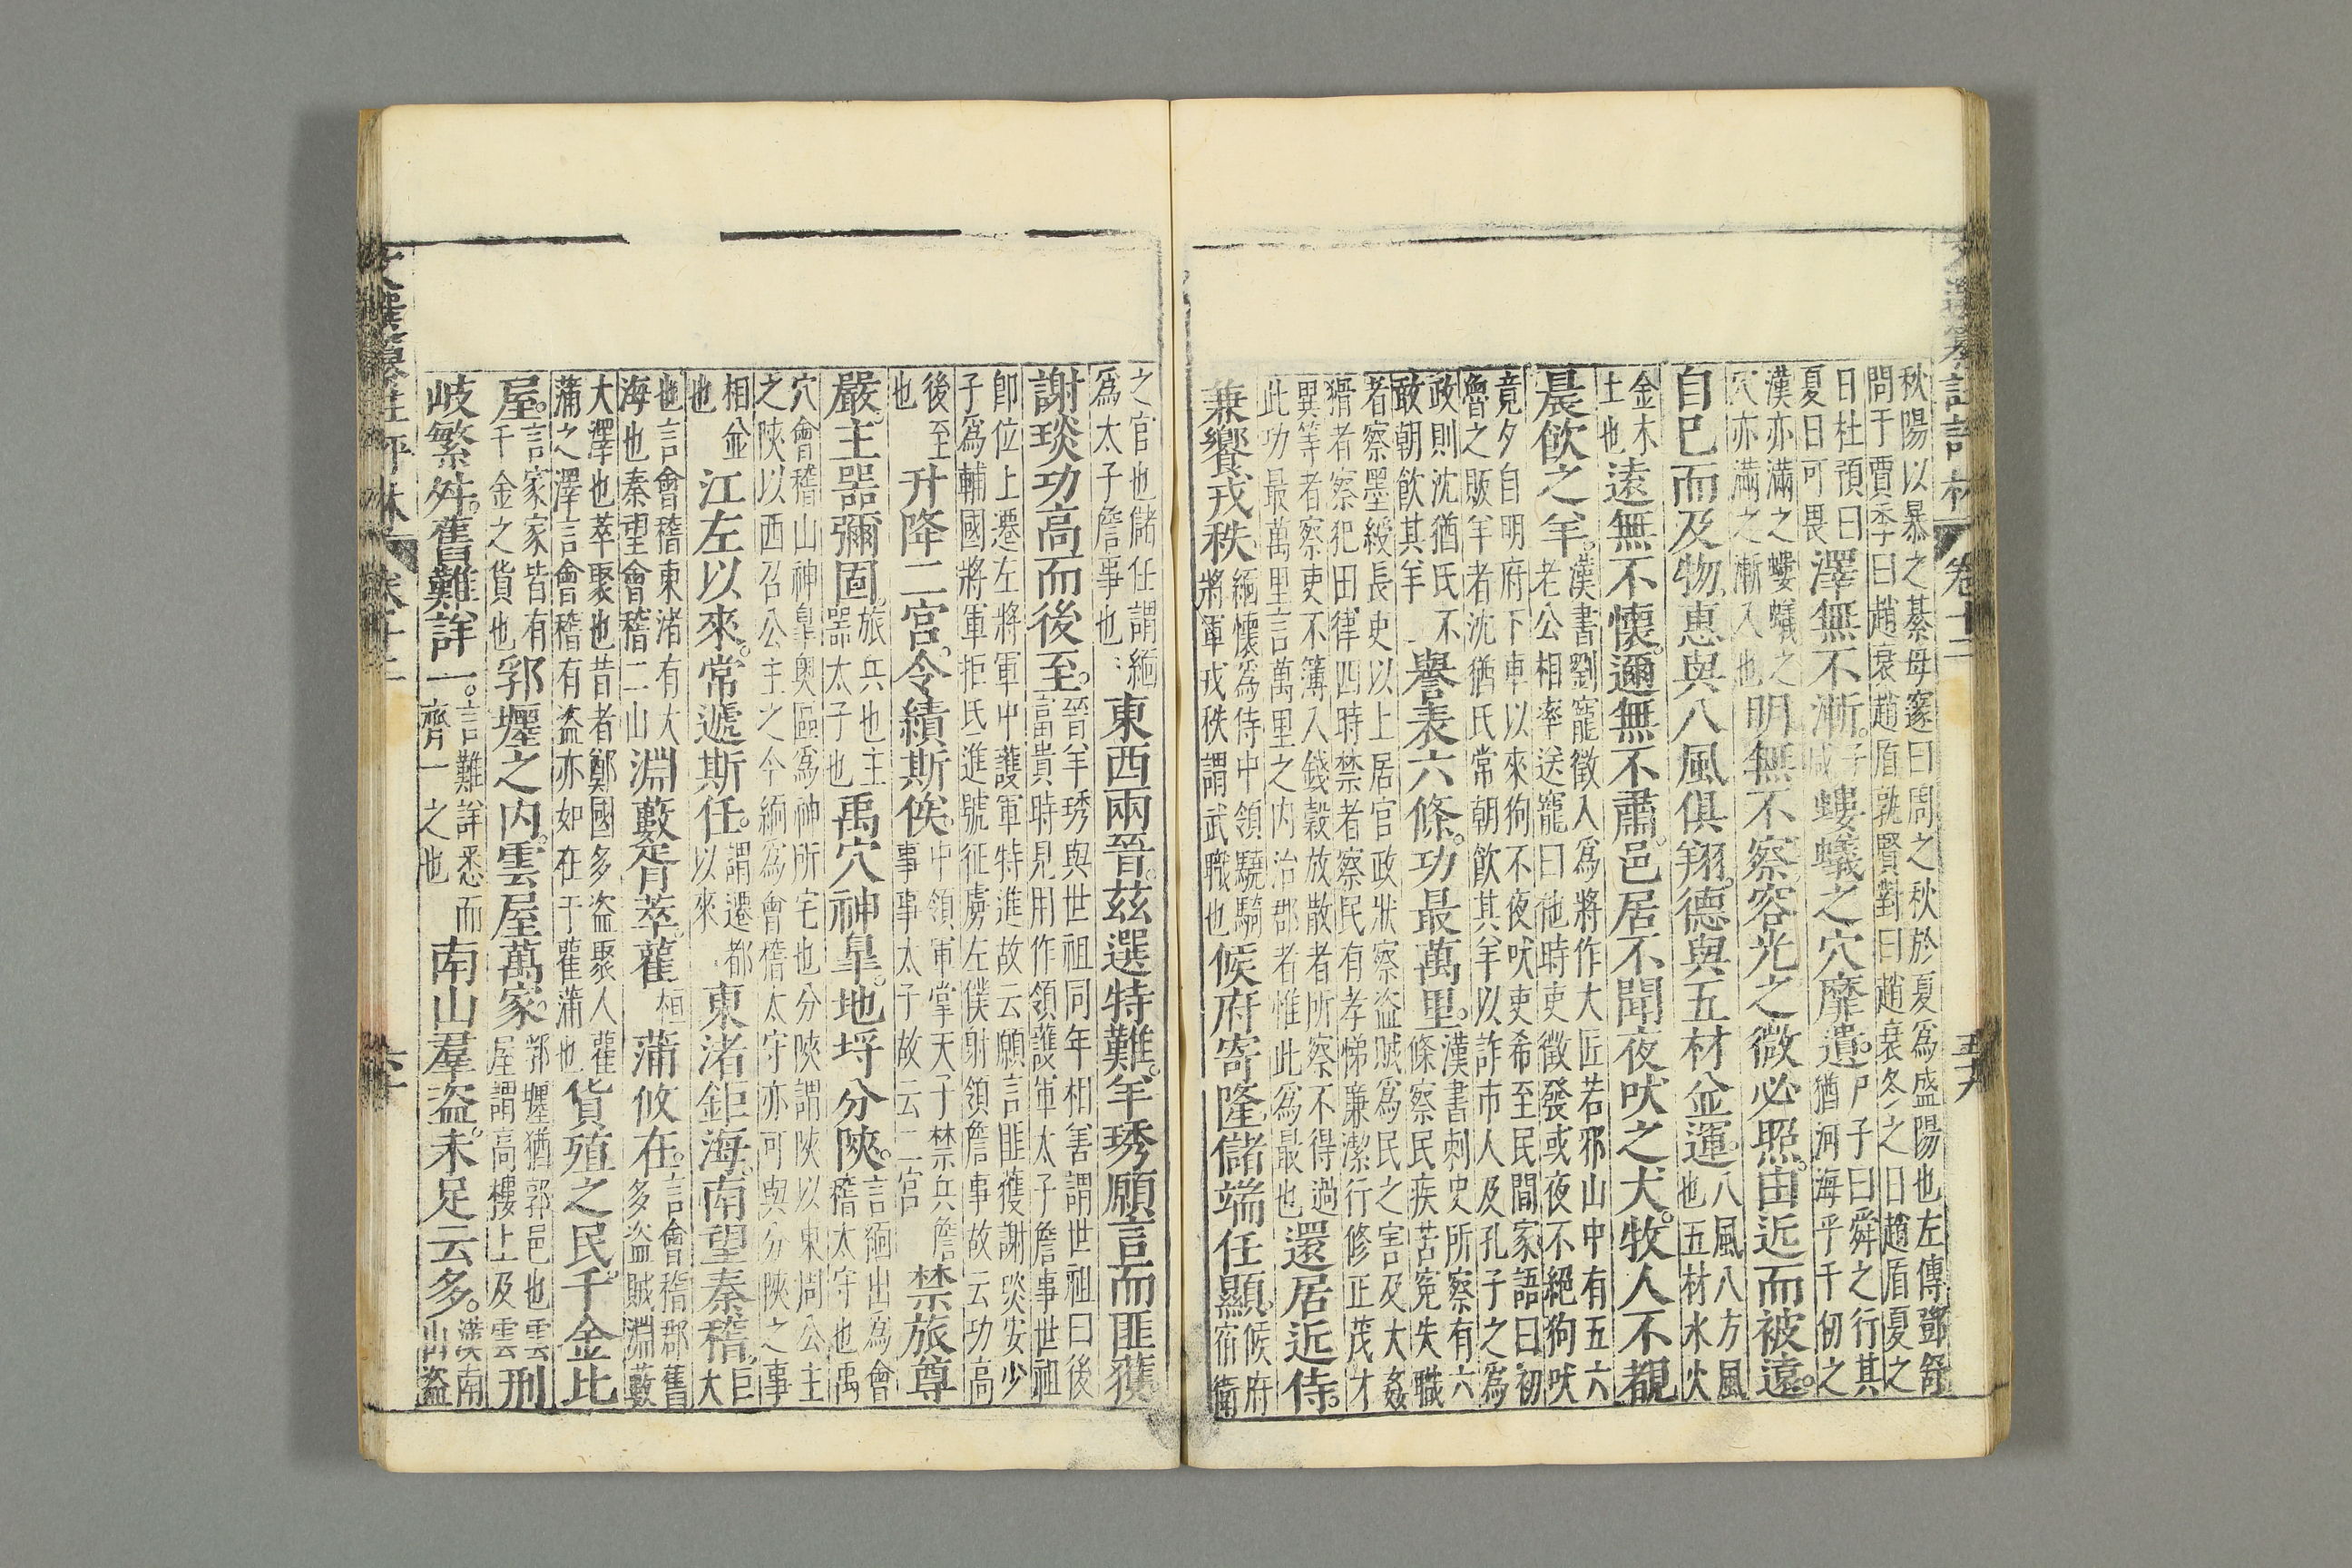 文選纂註評林 卷十二 五十九
秋陽以暴之綦母邃曰周之秋於夏為盛陽也左傳酆舒
問于賈季曰趙衰趙盾孰賢對曰趙衰冬之日趙盾夏之
日杜預曰
夏日可畏
澤無不漸。子咸螻蟻之穴靡遺。
尸子曰舜之行其
猶河海乎千仞之
漢亦滿之螻蟻之
穴亦滿之漸入也
明無不察容光之微必照。由近而被遠。
自巳而及物。惠與八風俱翔。德與五材並運。
八風八方風
也五材水火
金木
土也
遠無不懷。邇無不肅。邑居不聞夜吠之犬。牧人不覩
晨飲之羊。
漢書劉寵徵入為將作大匠若邪山中有五六
老公相率送寵曰他時吏徵發或夜不絕狗吠
竟夕自明府下車以來狗不夜吠吏希至民間家語曰初
魯之販羊者沈猶氏常朝飲其羊以詐市人及孔子之為
政則沈猶氏不
敢朝飲其羊
譽表六條。功最萬里。
漢書刺史所察有六
條察民疾苦冤失職
者察墨綬長史以上居官政狀察盜賊為民之害及大姦
猾者察犯田律四時禁者察民有孝悌廉潔行修正茂才
異等者察吏不簿入錢穀放散者所察不得過
此功最萬里言萬里之內治郡者惟此為最也
還居近侍。
兼饗戎秩
緬懷為侍中領驍騎
將軍戎秩謂武職也
候府寄隆儲端任顯。
候府
宿衛
之官也儲任謂緬
為太子詹事也
東西兩晉。茲選特難。羊琇願言而匪獲。
謝琰功高而後至。
晉羊琇與世祖同年相善謂世祖曰後
富貴時見用作領護軍太子詹事世祖
卽位上遷左將軍中護軍特進故云願言匪獲謝琰安少
子為輔國將軍拒氐進號征虜左僕射領詹事故云功高
後至
也
升降二宮。令績斯俟。
中領軍掌天子禁兵詹
事事太子故云二宮
禁旅尊
嚴。主器彌固。
旅兵也主
器太子也
禹穴神皐。地埒分陝。
言緬出為會
稽太守也禹
穴會稽山神皐奧區為神所宅也分陝謂陝以東周公主
之陝以西召公主之今緬為會稽太守亦可與分陝之事
相並
也
江左以來。常遞斯任。
謂遷都
以來
東渚鉅海。南望秦稽。
巨
大
也言會稽東渚有大
海也秦望會稽二山
淵藪胥萃。雚桓蒲攸在。
言會稽郡舊
多盜賊淵藪
大澤也萃聚也昔者鄭國多盜聚人雚
蒲之澤言會稽有盜亦如在于雚蒲也
貨殖之民。千金比
屋。
言家家皆有
千金之貨也
郛壥之內。雲屋萬家。
郛壥猶郭邑也雲
屋謂高樓上及雲
刑
岐繁舛。舊難詳一。
言難詳悉而
齊一之也
南山羣盜。未足云多。
漢南
山盜
文選纂註評林 卷十二 六十